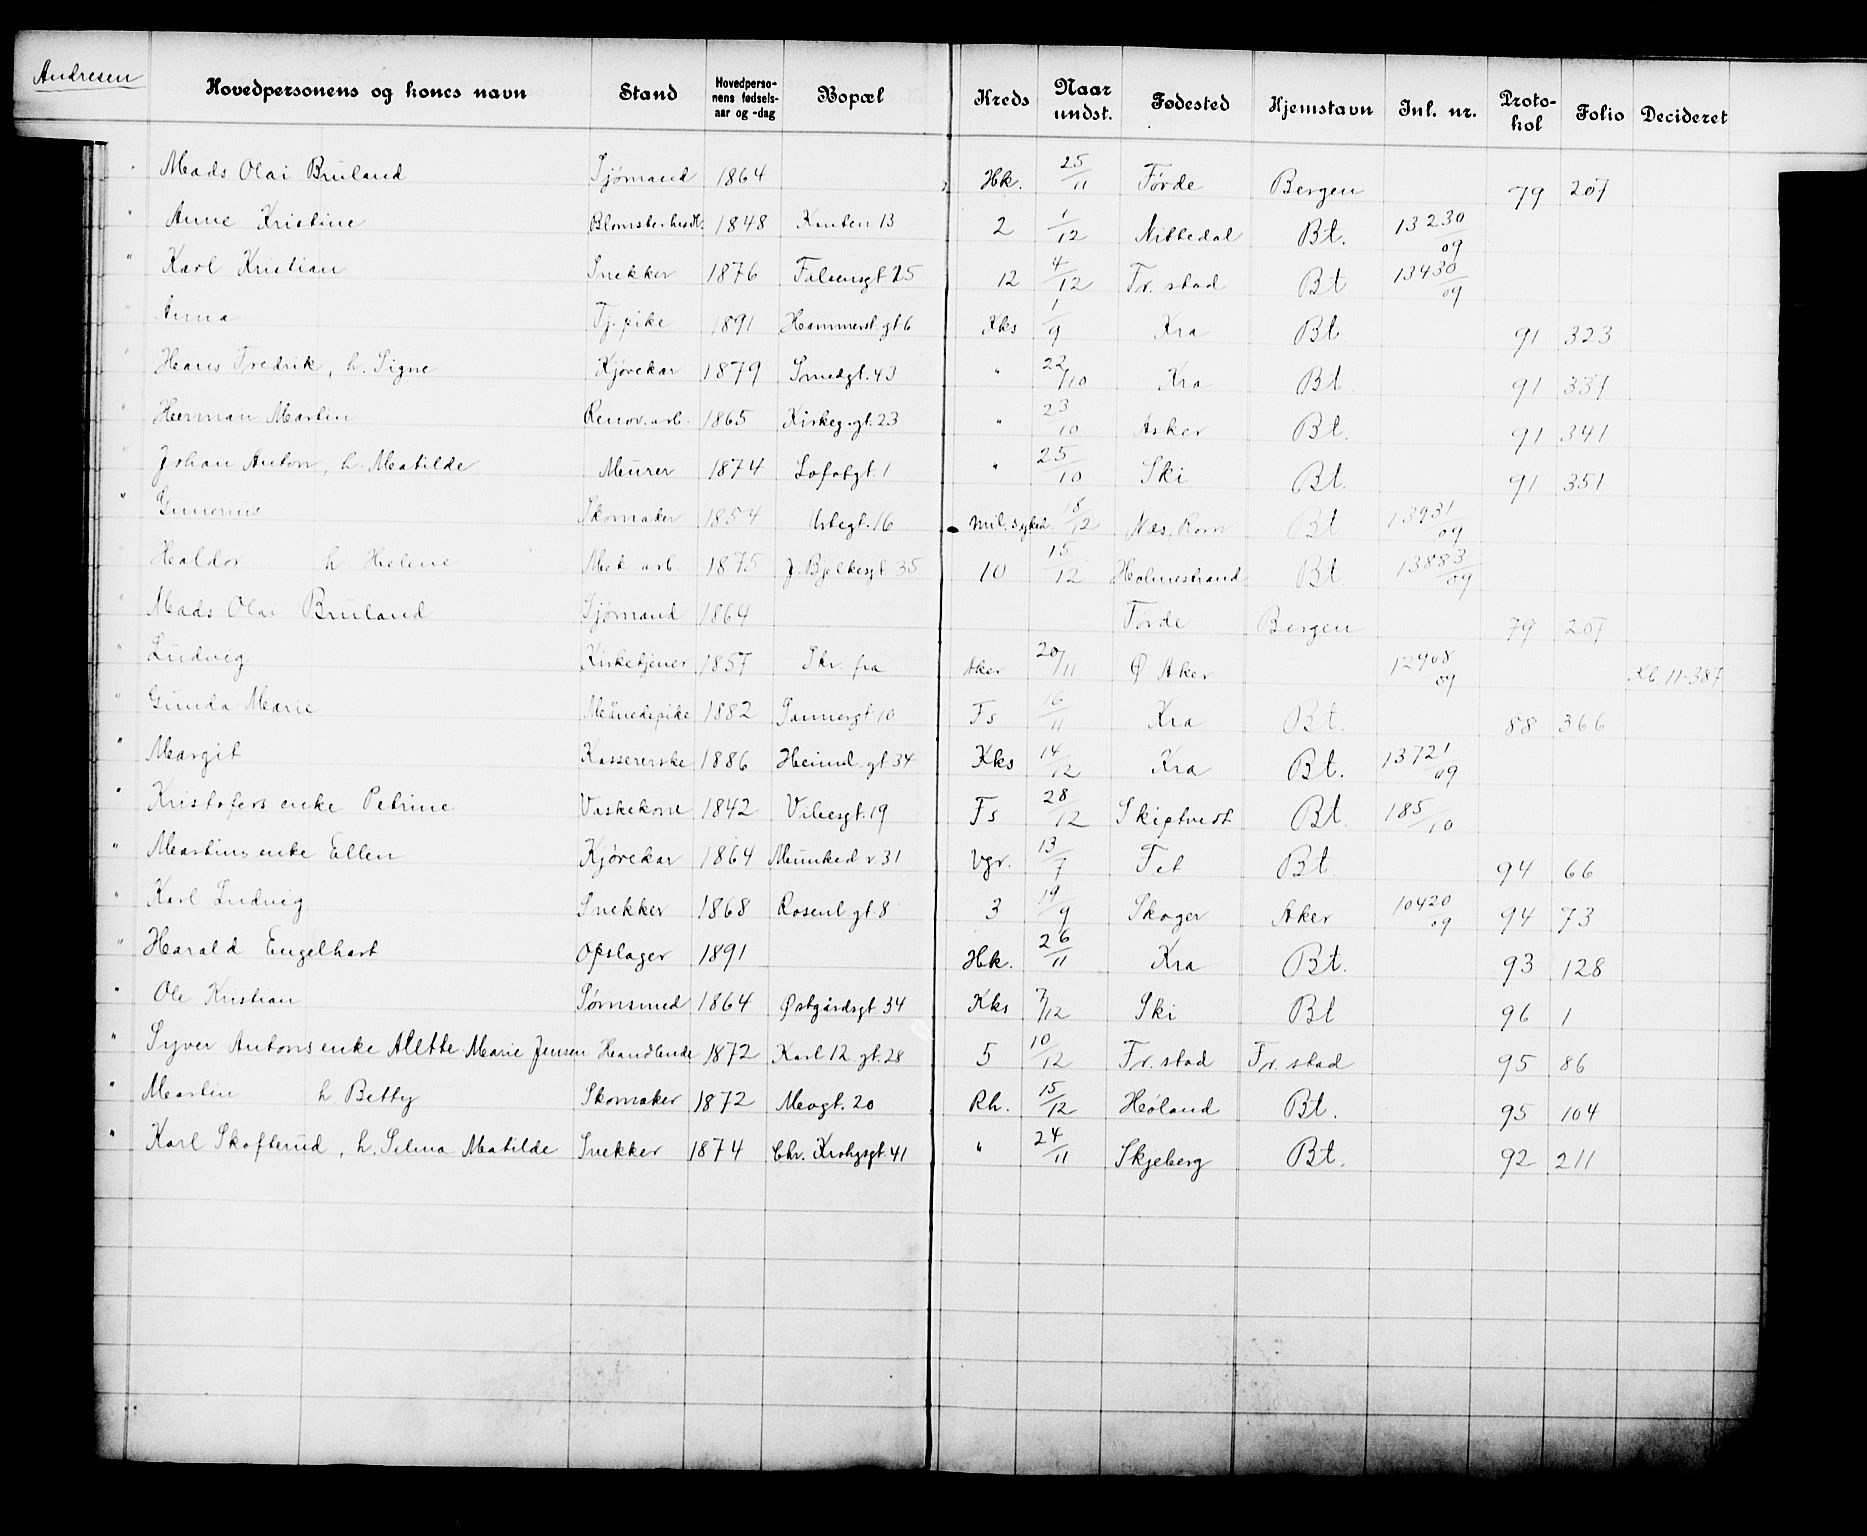 Andresen
Hovedpersonens og kones navn | Stand | Hovedpersonens fødselsaar og -dag | Bopæl | Kreds | Naar undst. | Fødested | Hjemstavn | Inl. nr. | Protokol | Folio | Decideret
" Mads Olai Bruland | Sjømand | 1864 | | Hk. | 25/11 | Førde | Bergen | | 79 | 207
" Anne Kristine | Blomsterhandl. | 1848 | Kanten 13 | 2 | 1/12 | Nittedal | Bt. | 13230/09
" Karl Kristian | Snekker | 1876 | Falsensgt. 25 | 12 | 4/12 | Fr. stad | Bt | 13430/09
" Anna | Tj. pike | 1891 | Hammerst. gt 6 | Kks | 1/9 | Kra | Bt. | | 91 | 323
" Hans Fredrik, h. Signe | Kjørekar | 1879 | Smedgt. 43 | " | 22/10 | Kra | Bt. | | 91 | 337
" Herman Martin | Renov. arb. | 1865 | Kirkeg. gt. 23 | " | 23/10 | Asker | Bt. | | 91 | 341
" Johan Anton, h. Matilde | Murer | 1874 | Lofotgt. 1 | " | 25/10 | Ski | Bt. | | 91 | 351
" Gunerius | Skomaker | 1854 | Urtegt. 16 | Mil. sykeh. | 18/12 | Næs, Rom | Bt | 13931/09
" Haldor h Helene | Mek. arb. | 1875 | J. Bjelkesgt. 35 | 10 | 15/12 | Holmestrand | Bt. | 13883/09
" Mads Olai Bruland | Sjømand | 1864 | | | | Førde | Bergen | | 79 | 207
" Ludvig | Kirketjener | 1857 | Skr. fra | Aker | 20/11 | Ø. Aker | | 12908/09 | | | Kl. 11-387
" Gunda Marie | Månedspike | 1882 | Sannergt 10 | Fs | 16/11 | Kra | Bt. | | 88 | 366
" Margit | Kassererske | 1886 | Heimd. gt 34 | Kks | 14/12 | Kra | Bt. | 13721/09
" Kristofers enke Petrine | Vaskekone | 1842 | Vibesgt. 19 | Fs | 28/12 | Skiptvedt | Bt. | 185/10
" Martins enke Ellen | Kjørekar | 1864 | Munked v. 31 | Vgr. | 13/7 | Fet | Bt. | | 94 | 66
" Karl Ludvig | Snekker | 1868 | Rosenb gt 8 | 3 | 19/9 | Skoger | Aker | 10420/09 | 94 | 73
" Harald Engelhart | Opslager | 1891 | | Hk. | 26/11 | Kra | Bt. | | 93 | 128
" Ole Kristian | Sømsmed | 1864 | Østgårdsgt. 34 | Kks | 7/12 | Ski | Bt | | 96 | 1
" Syver Antons enke Alette Marie Jensen | Handlende | 1872 | Karl 12 gt. 28 | 5 | 10/12 | Fr. stad | Fr. stad | | 95 | 86
" Martin h Betty | Skomaker | 1872 | Mogt. 20 | Rh. | 15/12 | Høland | Bt. | | 95 | 104
" Karl Skofterud, h. Selma Matilde | Snekker | 1874 | Chr. Krohgsgt. 41 | " | 24/11 | Skjeberg | Bt. | | 92 | 211